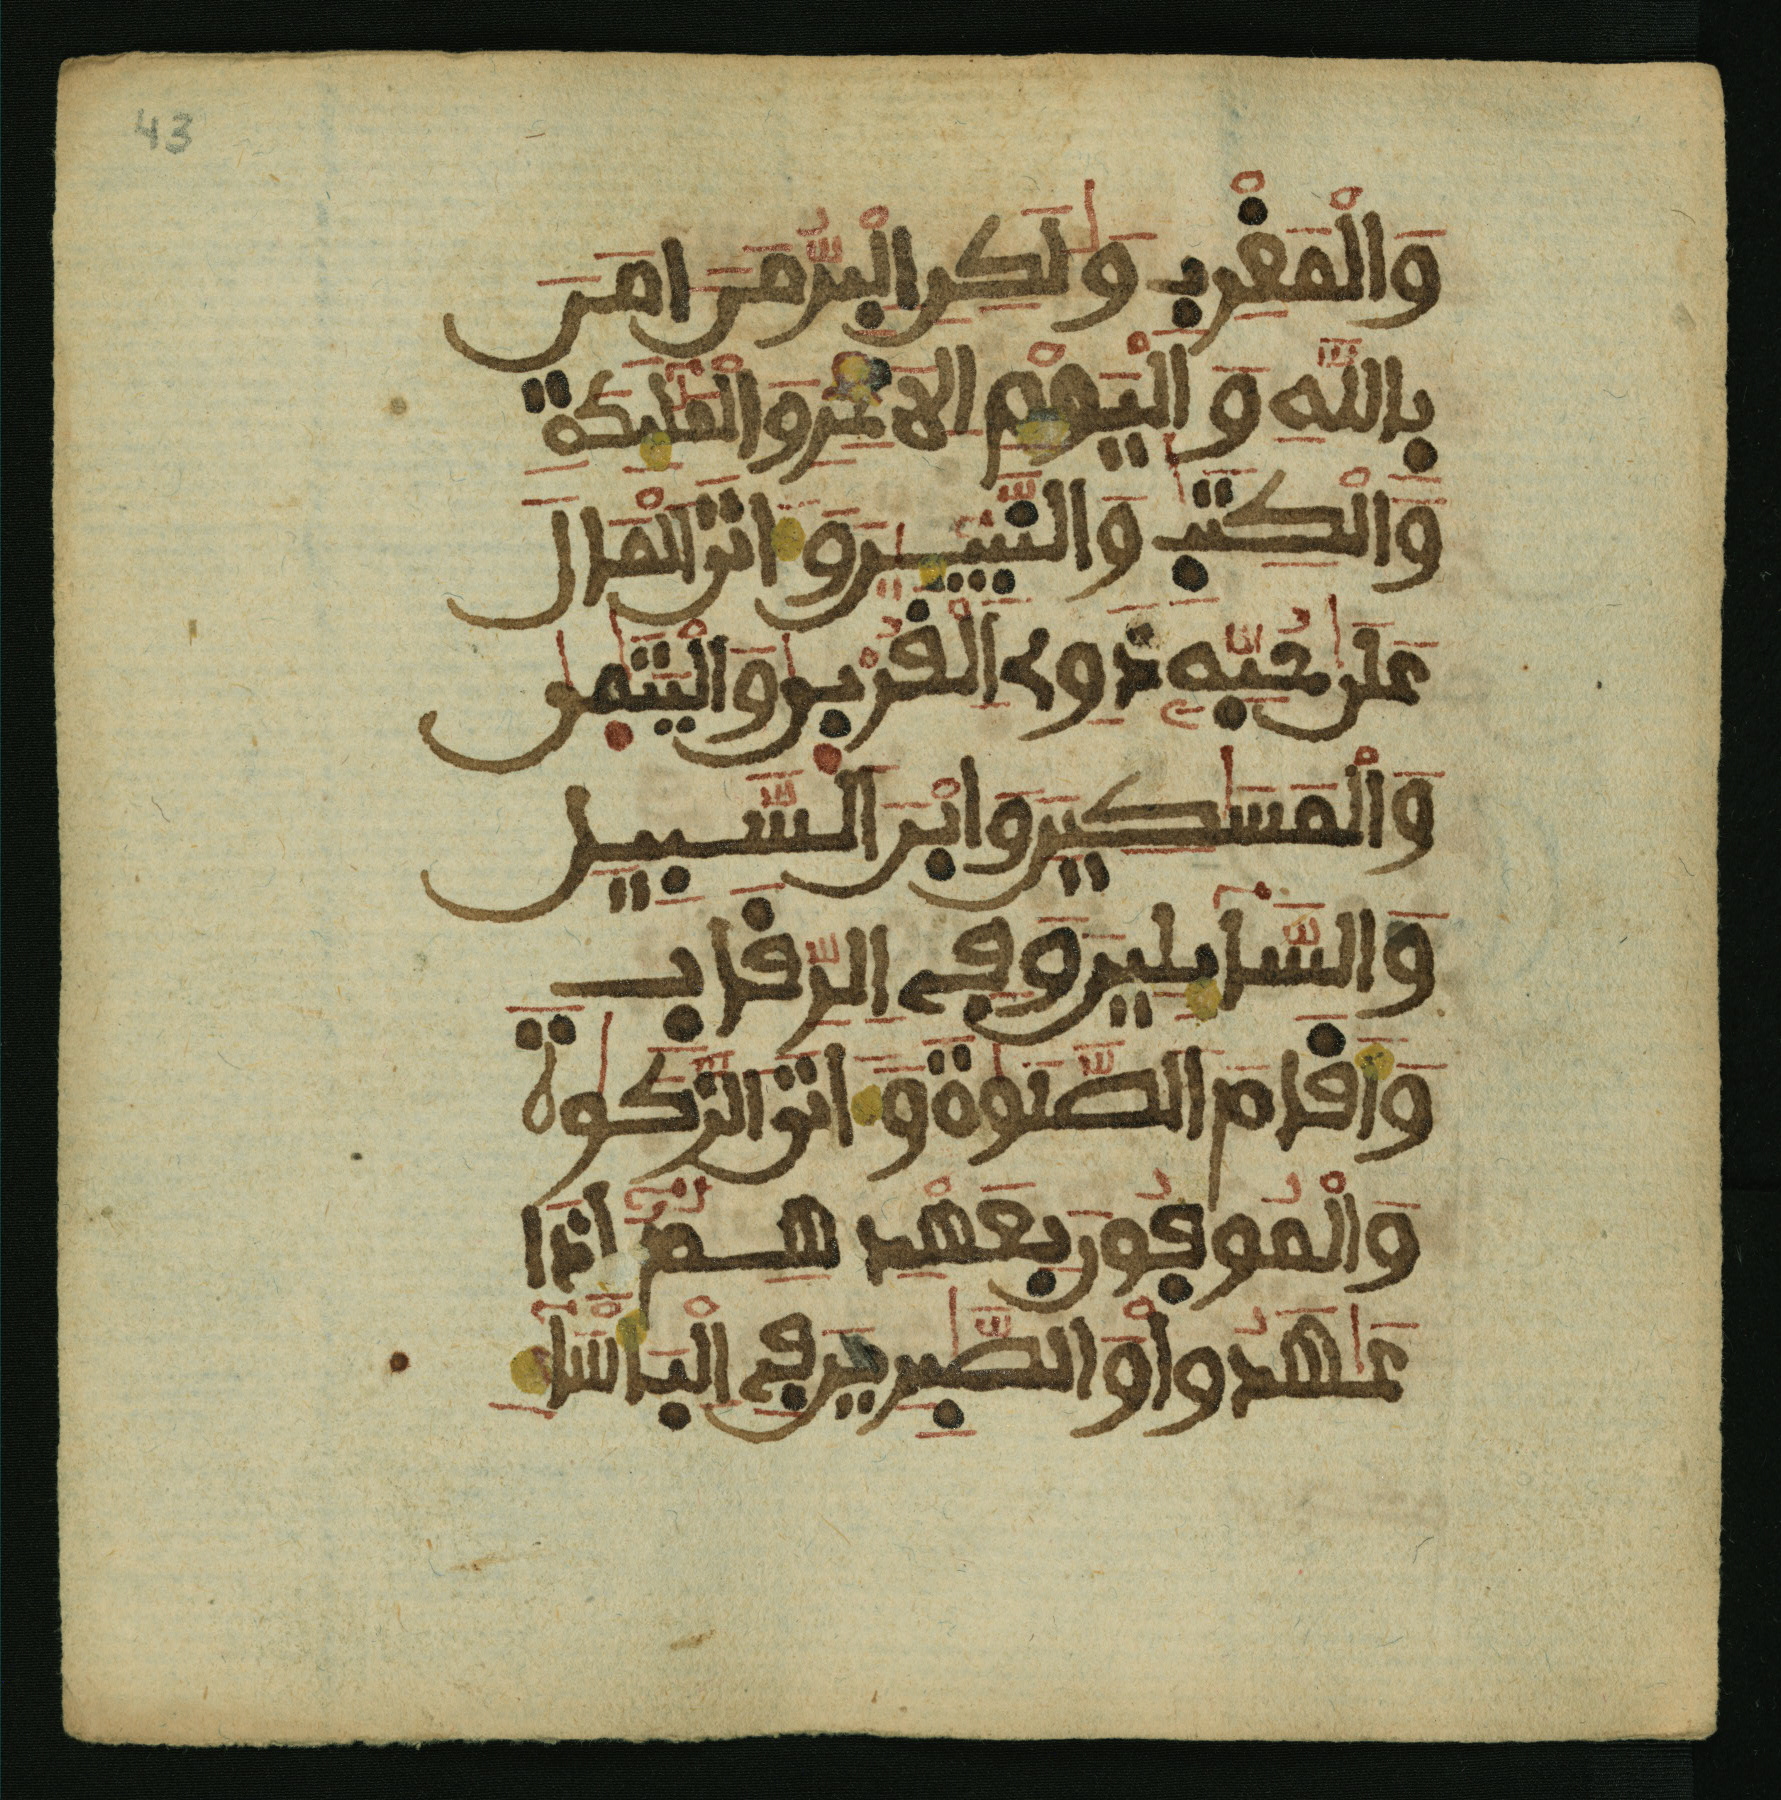 43
وَالْمَغْرِبِ وَلَٰكِنِ الْبِرُّ مَنَ اٰمَنَ
بِاللَّهِ وَالْيَوْمِ الَاخِرِ وَالْمَلَٰئِكَةِ
وَالْكِتَٰبِ وَالنَّبِيٓـِٕينَ وَءَاتَى الْمَالَ
عَلَىٰ حُبِّهِ ذَوِى الْقُرْبَىٰ وَالْيَتَٰمَىٰ
وَالْمَسَٰكِينَ وَابْنَ السَّبِيلِ
وَالسَّآئِلِينَ وَفِى الرِّقَابِ
وَأَقَامَ الصَّلَوٰةَ وَءَاتَى الزَّكَوٰةَ
وَالْمُوفُونَ بِعَهْدِهِمُۥٓ إِذَا
عَٰهَدُواْ وَالصَّٰبِرِينَ فِى الْبَأْسَآءِ